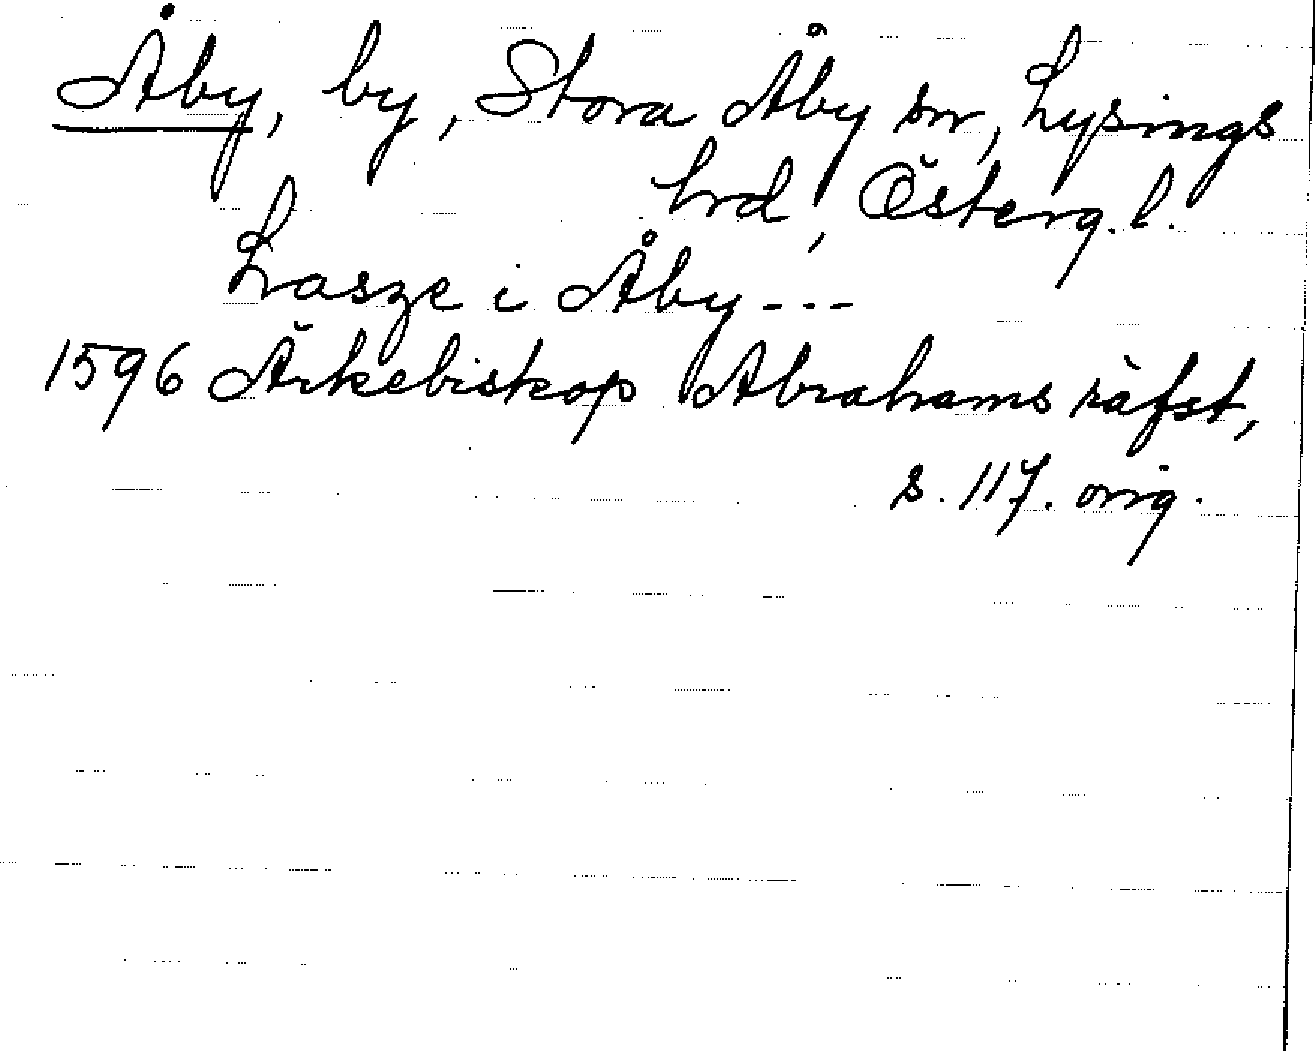 Åby, by, Stora Åby sn, Lysings
hrd, Österg. l.
Lasze i Åby ---
1596 Ärkebiskop Abrahams räfst,
s. 117. orig.